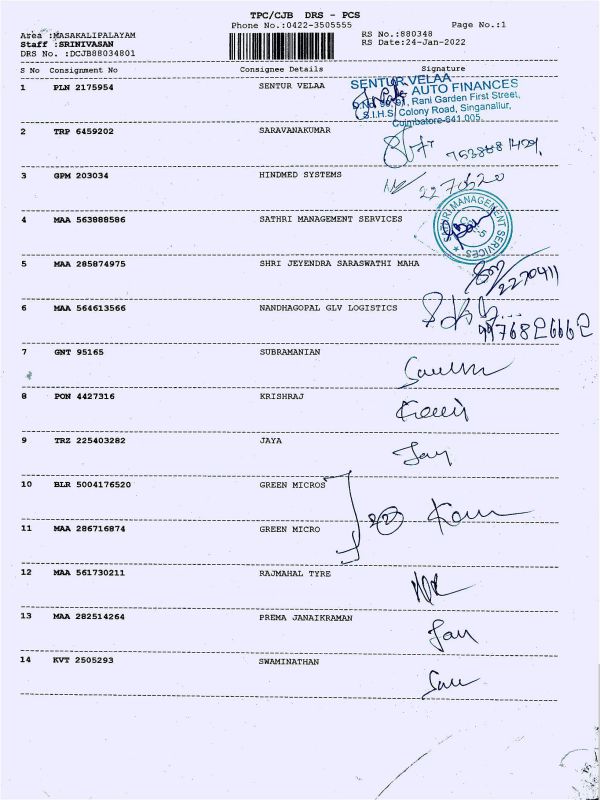 TPC/CJB DRS - PCS
Phone No.:0422-3505555
Page No.:1
Area :MASAKALIPALAYAM
RS No.:880348
Staff :SRINIVASAN
RS Date:24-Jan-2022
DRS No. :DCJB88034801
S No Consignment No Consignee Details Signature
1 PLN 2175954 SENTUR VELAA
SENTUR VELAA
AUTO FINANCES
Rani Garden First Street,
S.I.H.S. Colony Road, Singanallur,
Coimbatore-641 005
2 TRP 6459202 SARAVANAKUMAR
3 GPM 203034 HINDMED SYSTEMS
2270620
4 MAA 563888586 SATHRI MANAGEMENT SERVICES
SATHRI MANAGEMENT SERVICES
5 MAA 285874975 SHRI JEYENDRA SARASWATHI MAHA
2270411
6 MAA 564613566 NANDHAGOPAL GLV LOGISTICS
7 GNT 95165 SUBRAMANIAN
8 PON 4427316 KRISHRAJ
9 TRZ 225403282 JAYA
10 BLR 5004176520 GREEN MICROS
11 MAA 286716874 GREEN MICRO
12 MAA 561730211 RAJMAHAL TYRE
13 MAA 282514264 PREMA JANAIKRAMAN
14 KVT 2505293 SWAMINATHAN